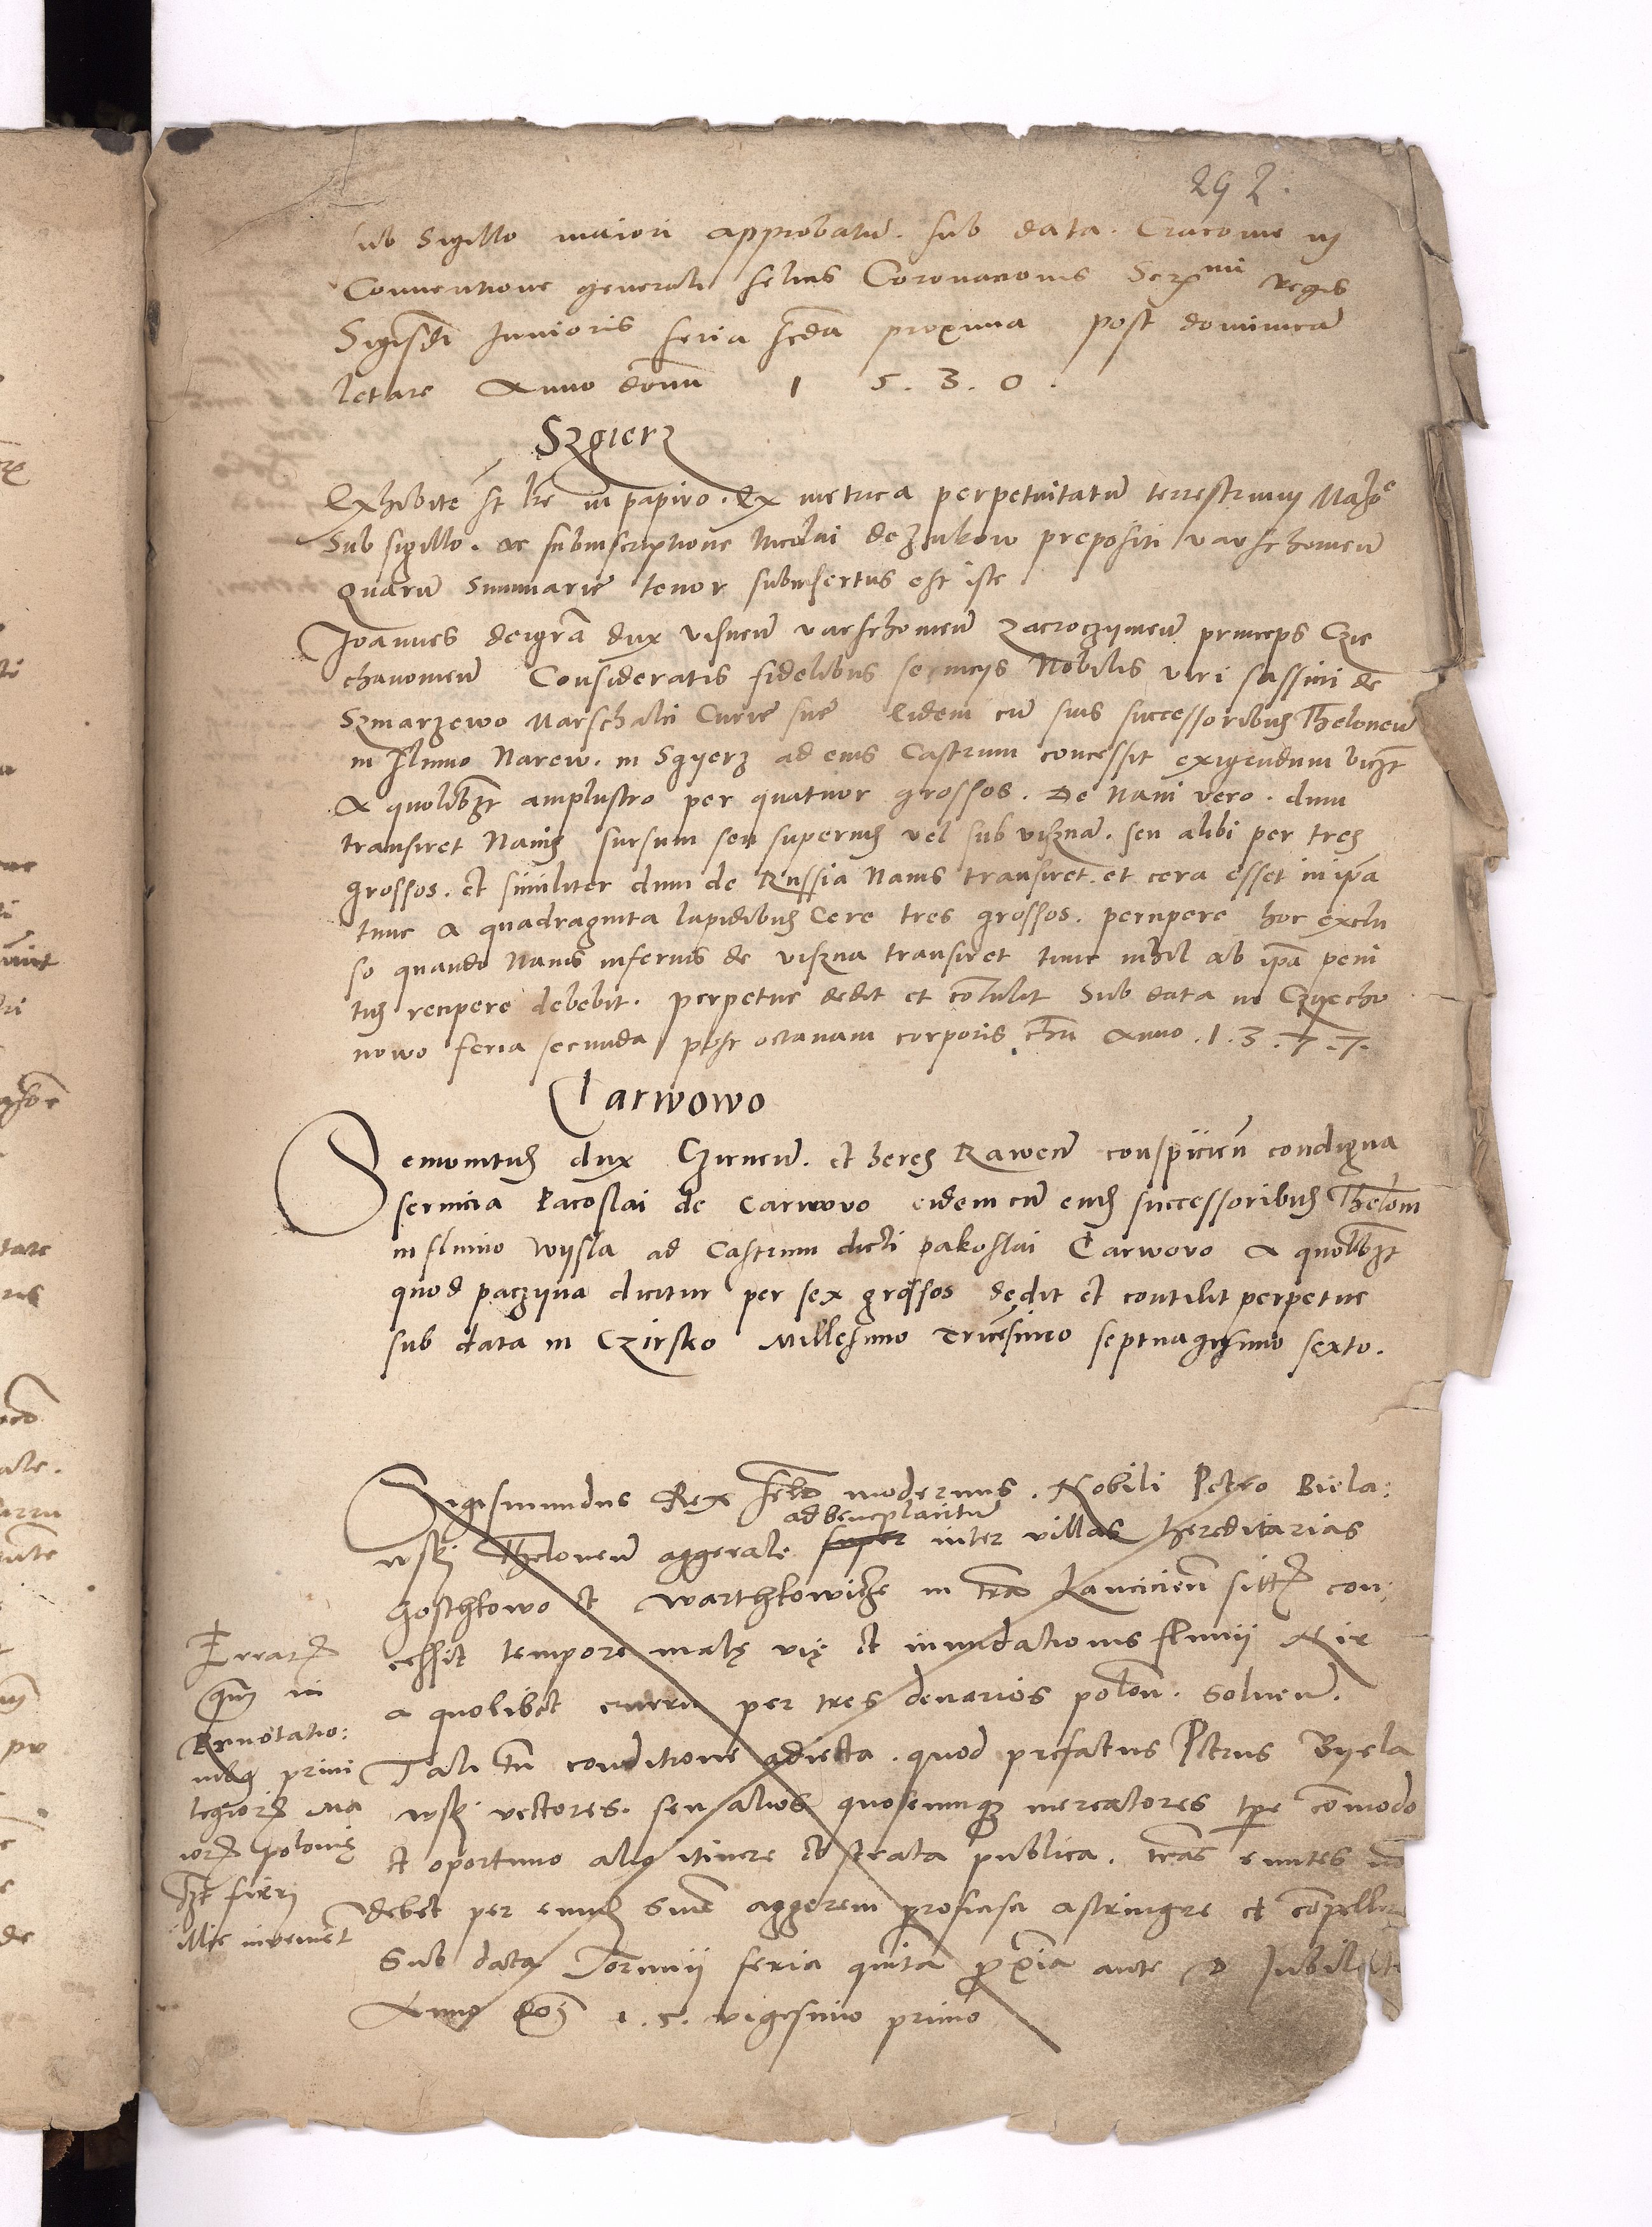 292.
sub Sigillo maiori approbatū. sub data. Cracovie in
Conventione generali felicis Coronacionis Serᵐⁱ regis
Sigismdi Iunioris feria scda proxima post dominicā
letare Anno domi 1 5. 3. 0.
Szgierz
Exhibite st lre in papiro. Ex metrica perpetuitatū terrestrium Mazo
Sub sigillo. ac subinscriptione Nicolai de Zukow prepositi varschoviен
quarū Summarie tenor subinsertus est iste
Joannes dei grā dux visneñ varschovieñ Zacroczymeñ princeps Czie
chanovieñ Consideratis fidelibus serviciis Nobilis viri sassini de
Szmarzewo Marschalci Curie sue Eidem cū suis successoribus Theloneū
in fluvio Narew. in Sgyerz ad eius Castrum concessit exigendum vicz
A quolibet amplustro per quatuor grossos. De Navi vero. dum
transiret Navis sursum seu superius vel sub visznā. seu alibi per tres
grossos. et similiter dum de Russia Navis transiret. et cera esset in ipā
tunc a quadraginta lapidibus Cere tres grossos. percipere hoc exclu
so quando Navis inferius de viszna transiret tunc nihil ab ipā peni
tus recipere debebit. perpetue dedit et cōtulit Sub data in Czyecho
nowo feria secunda post octavam corporis chri Anno. 1. 3. 7. 7.
Carwowo
Semovitus dux Czirneñ. et heres Raweñ conspicieñ condigna
servicia Pacoslai de Carwovo eidem cū eius successoribus Thelom
in fluvio Wysla ad Castrum dicti pakoslai Carwovo A quolibet
quod paczyna dicitur per sex grossos dedit et contulit perpetue
sub data in Czirsko Millesimo Tricesimo septuagesimo sexto.
Sigismundus Rex modernus. Nobili Petro Biela:
ad beneplacitū
wskj Theloneū aggerale super inter villas hereditarias
Gosthkowo et Warthkowicze in trā Lancicieñ con:
cessit tempore malę vię et inundationis fluvii Nir
a quolibet curru per tres denarios poloñ. solueñ.
Tali tñ conditione adiecta. quod prefatus Petrus Byela
wskj vectores. seu alios quoscunqz mercatores tpe cōmodo
et oportuno alio itinere et strata publica. euntes
debet per eundē suū aggerem astringere et cōpellere
Sub data Torunii feria quinta proxia ante D Jubilate
Anno doī 1. 5. vigesimo primo
Errat
qm in
Connotatio:
nibus privi
legiorū Ma
iorū polonię
fieri
illic inveniet